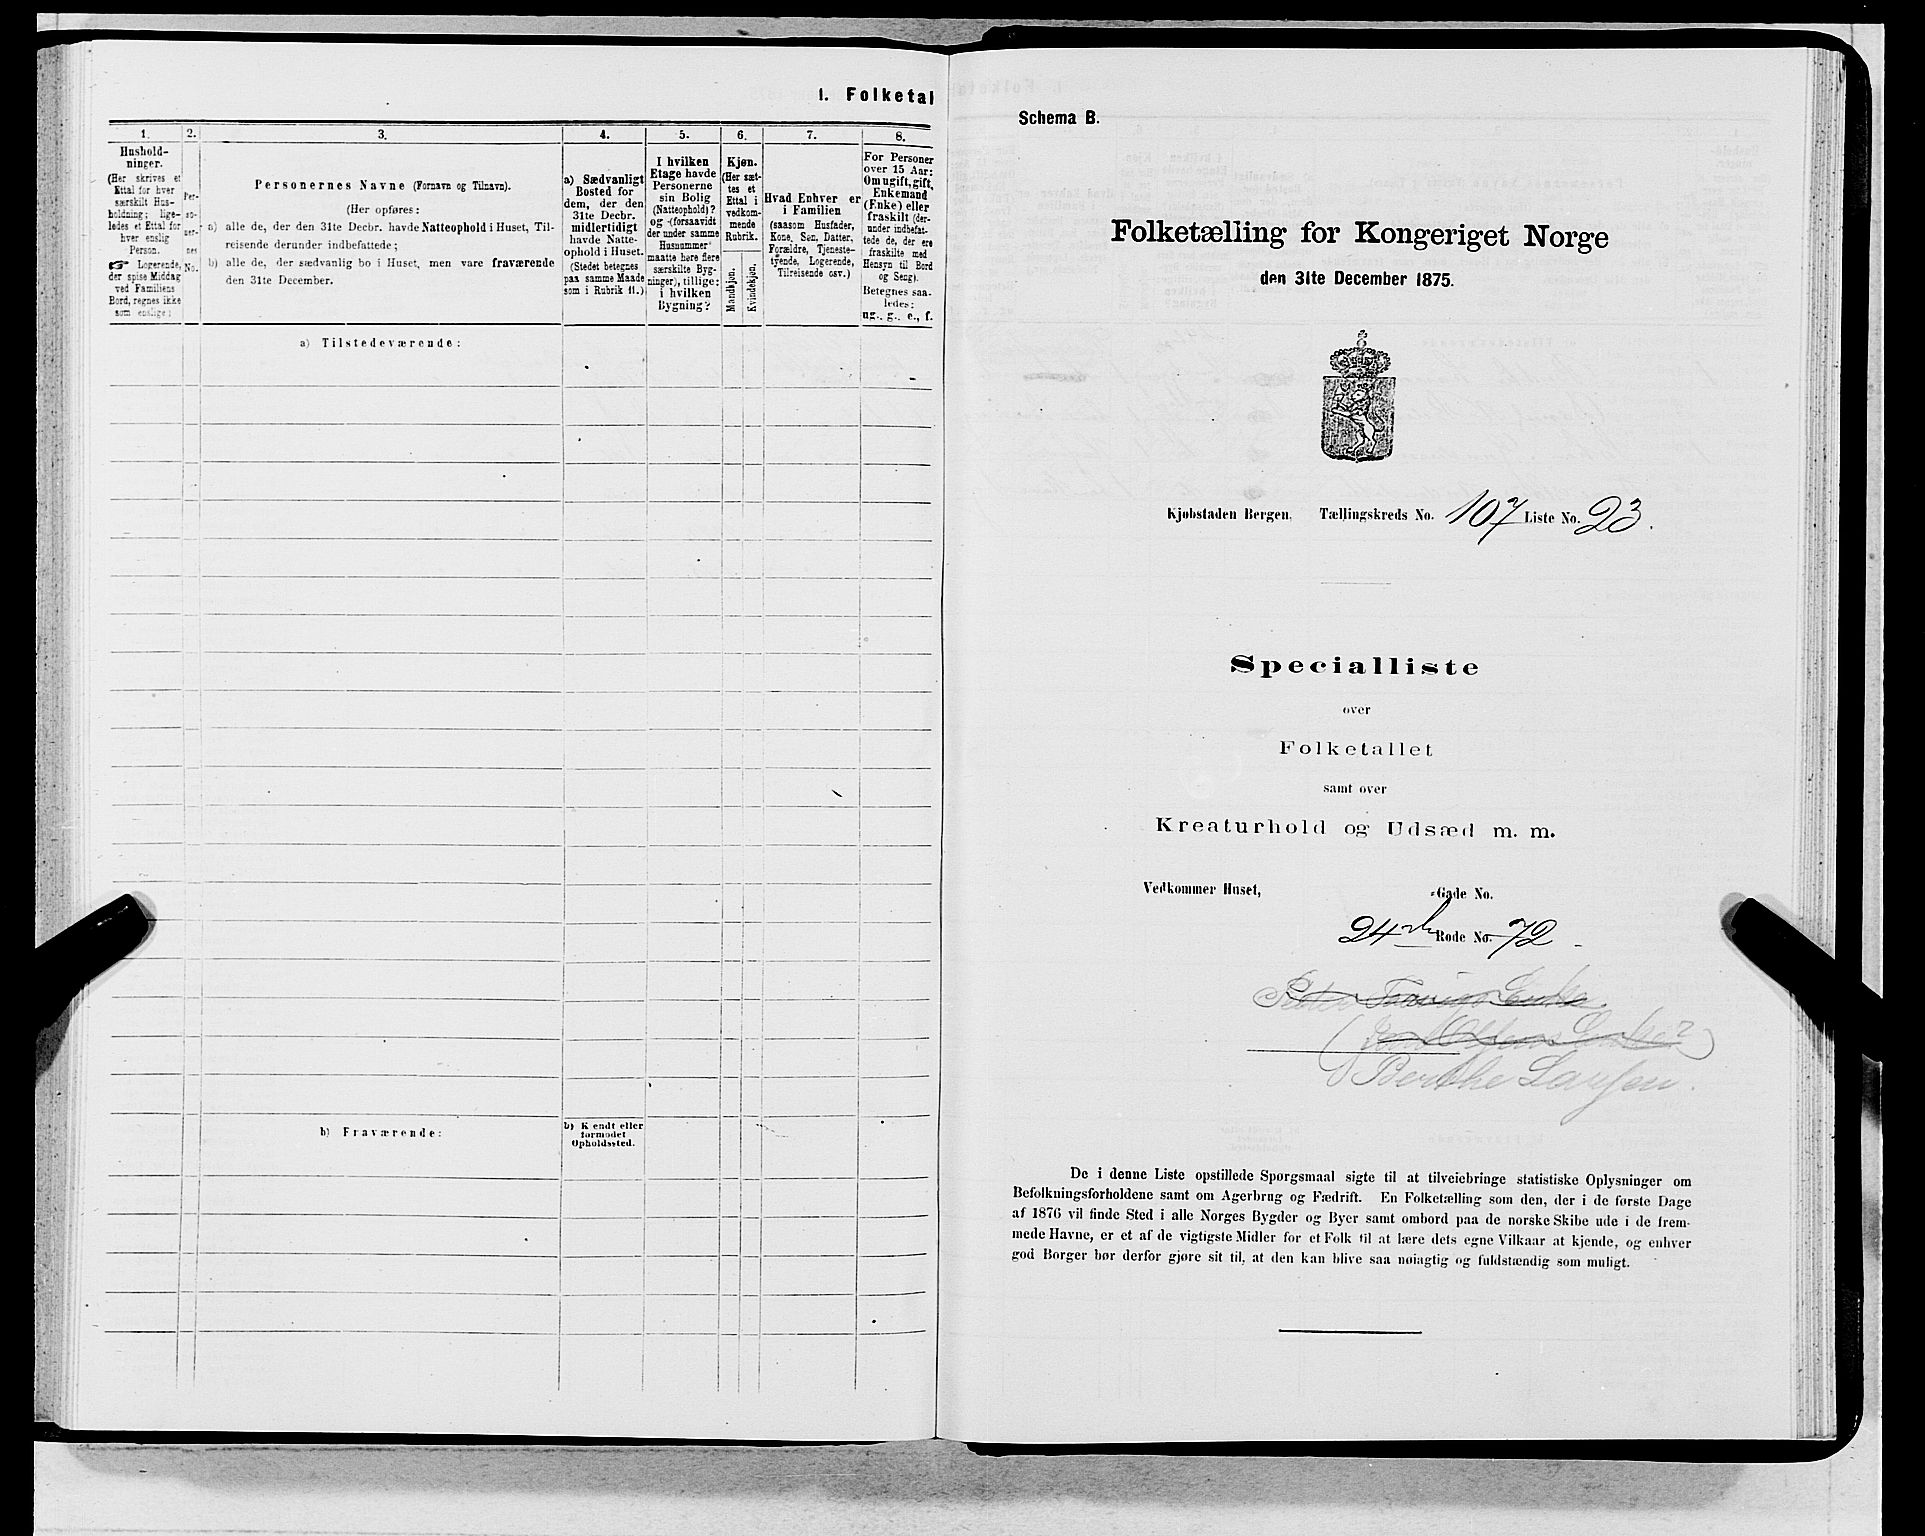 1. Folketal
1. 2. 3. 4. 5. 6. 7. 8.
Hushold-
ninger.
(Her skrives et
Ettal for hver
særskilt Hus-
holdning; lige-
ledes et Ettal for
hver enslig
Person.
☞ Logerende,
der spise Middag
ved Familiens
Bord, regnes ikke
som enslige;
Per-
so-
ner-
nes
No.
Personernes Navne (Fornavn og Tilnavn).
(Her opføres:
a) alle de, der den 31te Decbr. havde Natteophold i Huset, Til-
reisende derunder indbefattede;
b) alle de, der sædvanlig bo i Huset, men vare fraværende
den 31te December.
a) Sædvanligt
Bosted for
dem, der den
31te Decbr.
midlertidigt
havde Natte-
ophold i Huset.
(Stedet betegnes
paa samme Maade
som i Rubrik 11.)
I hvilken
Etage havde
Personerne
sin Bolig
(Natteophold)?
og (forsaavidt
der under samme
Husnummer
maatte høre flere
særskilte Byg-
ninger), tillige:
i hvilken
Bygning?
Kjøn.
(Her sæt-
tes et
Ettal i
vedkom-
mende
Rubrik.
Mandkjøn.
Kvindekjøn.
Hvad Enhver er
i Familien
(saasom Husfader,
Kone, Søn, Datter,
Forældre, Tjeneste-
tyende, Logerende,
Tilreisende osv.)
For Personer
over 15 Aar:
Om ugift, gift,
Enkemand
(Enke) eller
fraskilt (der-
under indbefat-
tede de, der ere
fraskilte med
Hensyn til Bord
og Seng).
Betegnes saa-
ledes:
ug., g., e., f.
a) Tilstedeværende:
b) Fraværende:
b) Kendt eller
formodet
Opholdssted.
Schema B.
Folketælling for Kongeriget Norge
den 31te December 1875.
Kjøbstaden Bergen. Tællingskreds No. 107 Liste No. 23.
Specialliste
over
Folketallet
samt over
Kreaturhold og Udsæd m. m.
Vedkommer Huset, -Gade No.
24de Rode No. 72
Enke
Enke?)
Berthe
De i denne Liste opstillede Spørgsmaal sigte til at tilveiebringe statistiske Oplysninger om
Befolkningsforholdene samt om Agerbrug og Fædrift. En Folketælling som den, der i de første Dage
af 1876 vil finde Sted i alle Norges Bygder og Byer samt ombord paa de norske Skibe ude i de frem-
mede Havne, er et af de vigtigste Midler for et Folk til at lære dets egne Vilkaar at kjende, og enhver
god Borger bør derfor gjøre sit til, at den kan blive saa nøiagtig og fuldstændig som muligt.